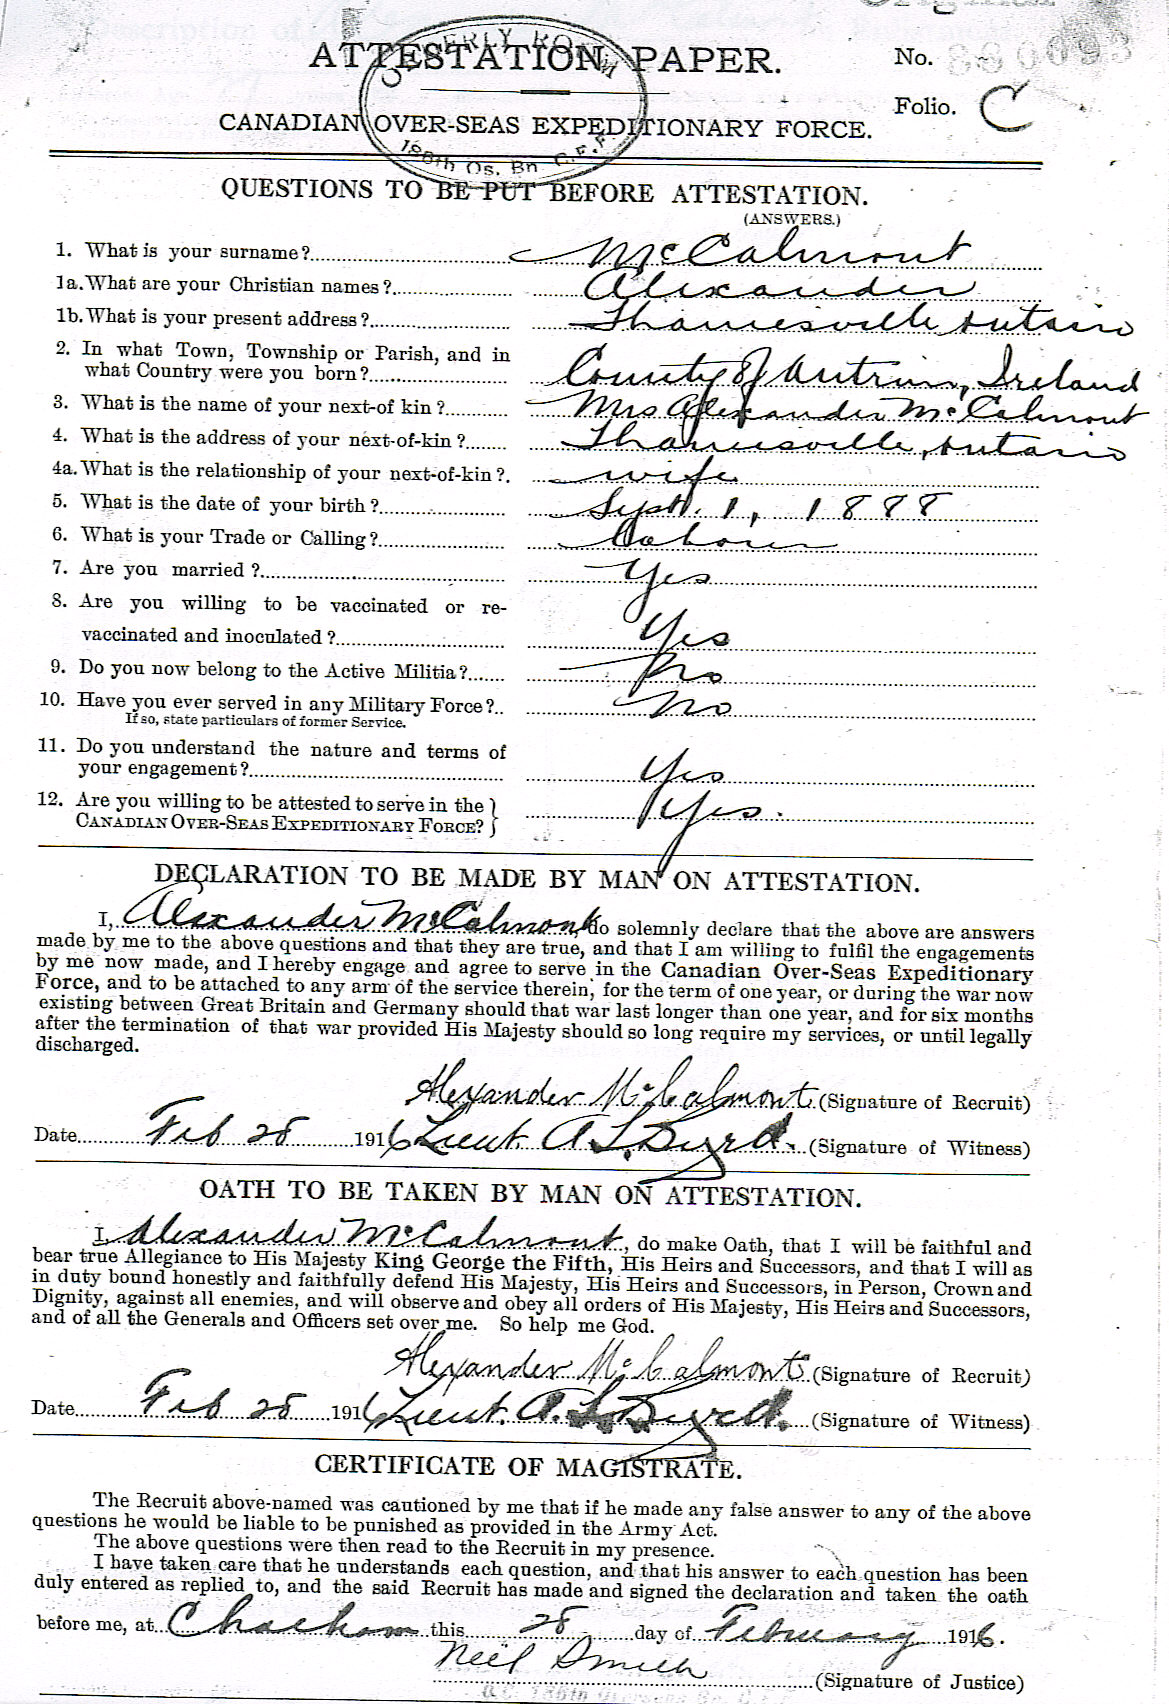 ATTESTATION PAPER.
No. 880093
Folio. C
ORDERLY ROOM
186th Os. Bn. C.E.F.
CANADIAN OVER-SEAS EXPEDITIONARY FORCE.
QUESTIONS TO BE PUT BEFORE ATTESTATION.
(ANSWERS.)
1. What is your surname? McCalmont
1a. What are your Christian names? Alexander
1b. What is your present address? Thamesville, Ontario
2. In what Town, Township or Parish, and in
what Country were you born? County of Antrim, Ireland
3. What is the name of your next-of kin? Mrs Alexander McCalmont
4. What is the address of your next-of-kin? Thamesville, Ontario
4a. What is the relationship of your next-of-kin? wife
5. What is the date of your birth? Sept. 1, 1888
6. What is your Trade or Calling? Labourer
7. Are you married? Yes
8. Are you willing to be vaccinated or re-
vaccinated and inoculated? Yes
9. Do you now belong to the Active Militia? No
10. Have you ever served in any Military Force? No
If so, state particulars of former Service.
11. Do you understand the nature and terms of
your engagement? Yes
12. Are you willing to be attested to serve in the
CANADIAN OVER-SEAS EXPEDITIONARY FORCE? Yes.
DECLARATION TO BE MADE BY MAN ON ATTESTATION.
I, Alexander McCalmont do solemnly declare that the above are answers
made by me to the above questions and that they are true, and that I am willing to fulfil the engagements
by me now made, and I hereby engage and agree to serve in the Canadian Over-Seas Expeditionary
Force, and to be attached to any arm of the service therein, for the term of one year, or during the war now
existing between Great Britain and Germany should that war last longer than one year, and for six months
after the termination of that war provided His Majesty should so long require my services, or until legally
discharged.
Alexander McCalmont (Signature of Recruit)
Date Feb 28 1916 Lieut. A. L. Byrd. (Signature of Witness)
OATH TO BE TAKEN BY MAN ON ATTESTATION.
I, Alexander McCalmont, do make Oath, that I will be faithful and
bear true Allegiance to His Majesty King George the Fifth, His Heirs and Successors, and that I will as
in duty bound honestly and faithfully defend His Majesty, His Heirs and Successors, in Person, Crown and
Dignity, against all enemies, and will observe and obey all orders of His Majesty, His Heirs and Successors,
and of all the Generals and Officers set over me. So help me God.
Alexander McCalmont (Signature of Recruit)
Date Feb 28 1916 Lieut. A. L. Byrd. (Signature of Witness)
CERTIFICATE OF MAGISTRATE.
The Recruit above-named was cautioned by me that if he made any false answer to any of the above
questions he would be liable to be punished as provided in the Army Act.
The above questions were then read to the Recruit in my presence.
I have taken care that he understands each question, and that his answer to each question has been
duly entered as replied to, and the said Recruit has made and signed the declaration and taken the oath
before me, at Chatham this 28 day of February 1916.
Neil Smith (Signature of Justice)